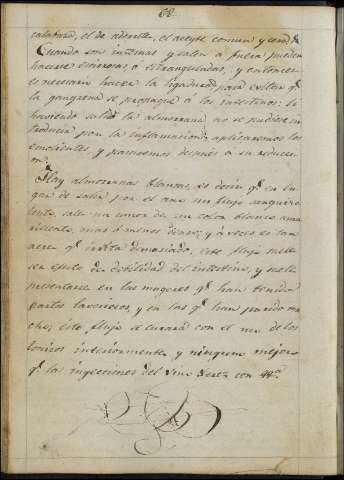 68.
calabaza, el de adormid.s, el aceyte comun y cerato.
Cuando son internas y salen a fuera pueden
hacerse escirrosas, ó estranguladas, y entonces
es necesario hacer la ligadura para evitar q.e
la gangrena se propague á los intestinos: si
haviendo salido la almorrana no se pudiese in-
troducir por la inflamacion, aplicaremos los
emolientes y pasaremos después á su reduccio-
n.
Hay almorranas blancas, es decir q.e en lu-
gar de salir por el ano un flujo sanguino-
lento, sale un umor de un color blanco ama-
rillento, mas ó menos denso, y á veces es tan
acre q.e irrita demasiado, este flujo suele
ser efecto de debilidad del intestino, y suele
presentarse en las mugeres q.e han tenido
partos laboriosos, y en las q.e han parido mu-
cho; este flujo se curará con el uso de los
tonicos interiormente y ninguno mejor
q.e las inyecciones del Vino Jerez con